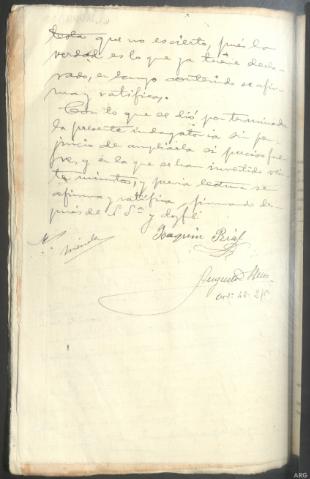 testa que no es cierto, pués la
verdad es lo que ya tiene decla-
rado, en cuyo contenido se afir-
ma y ratifica.
Con lo que se dió por terminada
la presente indagatoria sin per-
juicio de ampliarla si preciso fue-
re, y en la que se han invertido
minutos, y previa lectura se
afirma y ratifica, firmando des-
pués de S. Sª y doy fé
Joaquin
Augusto
ARG